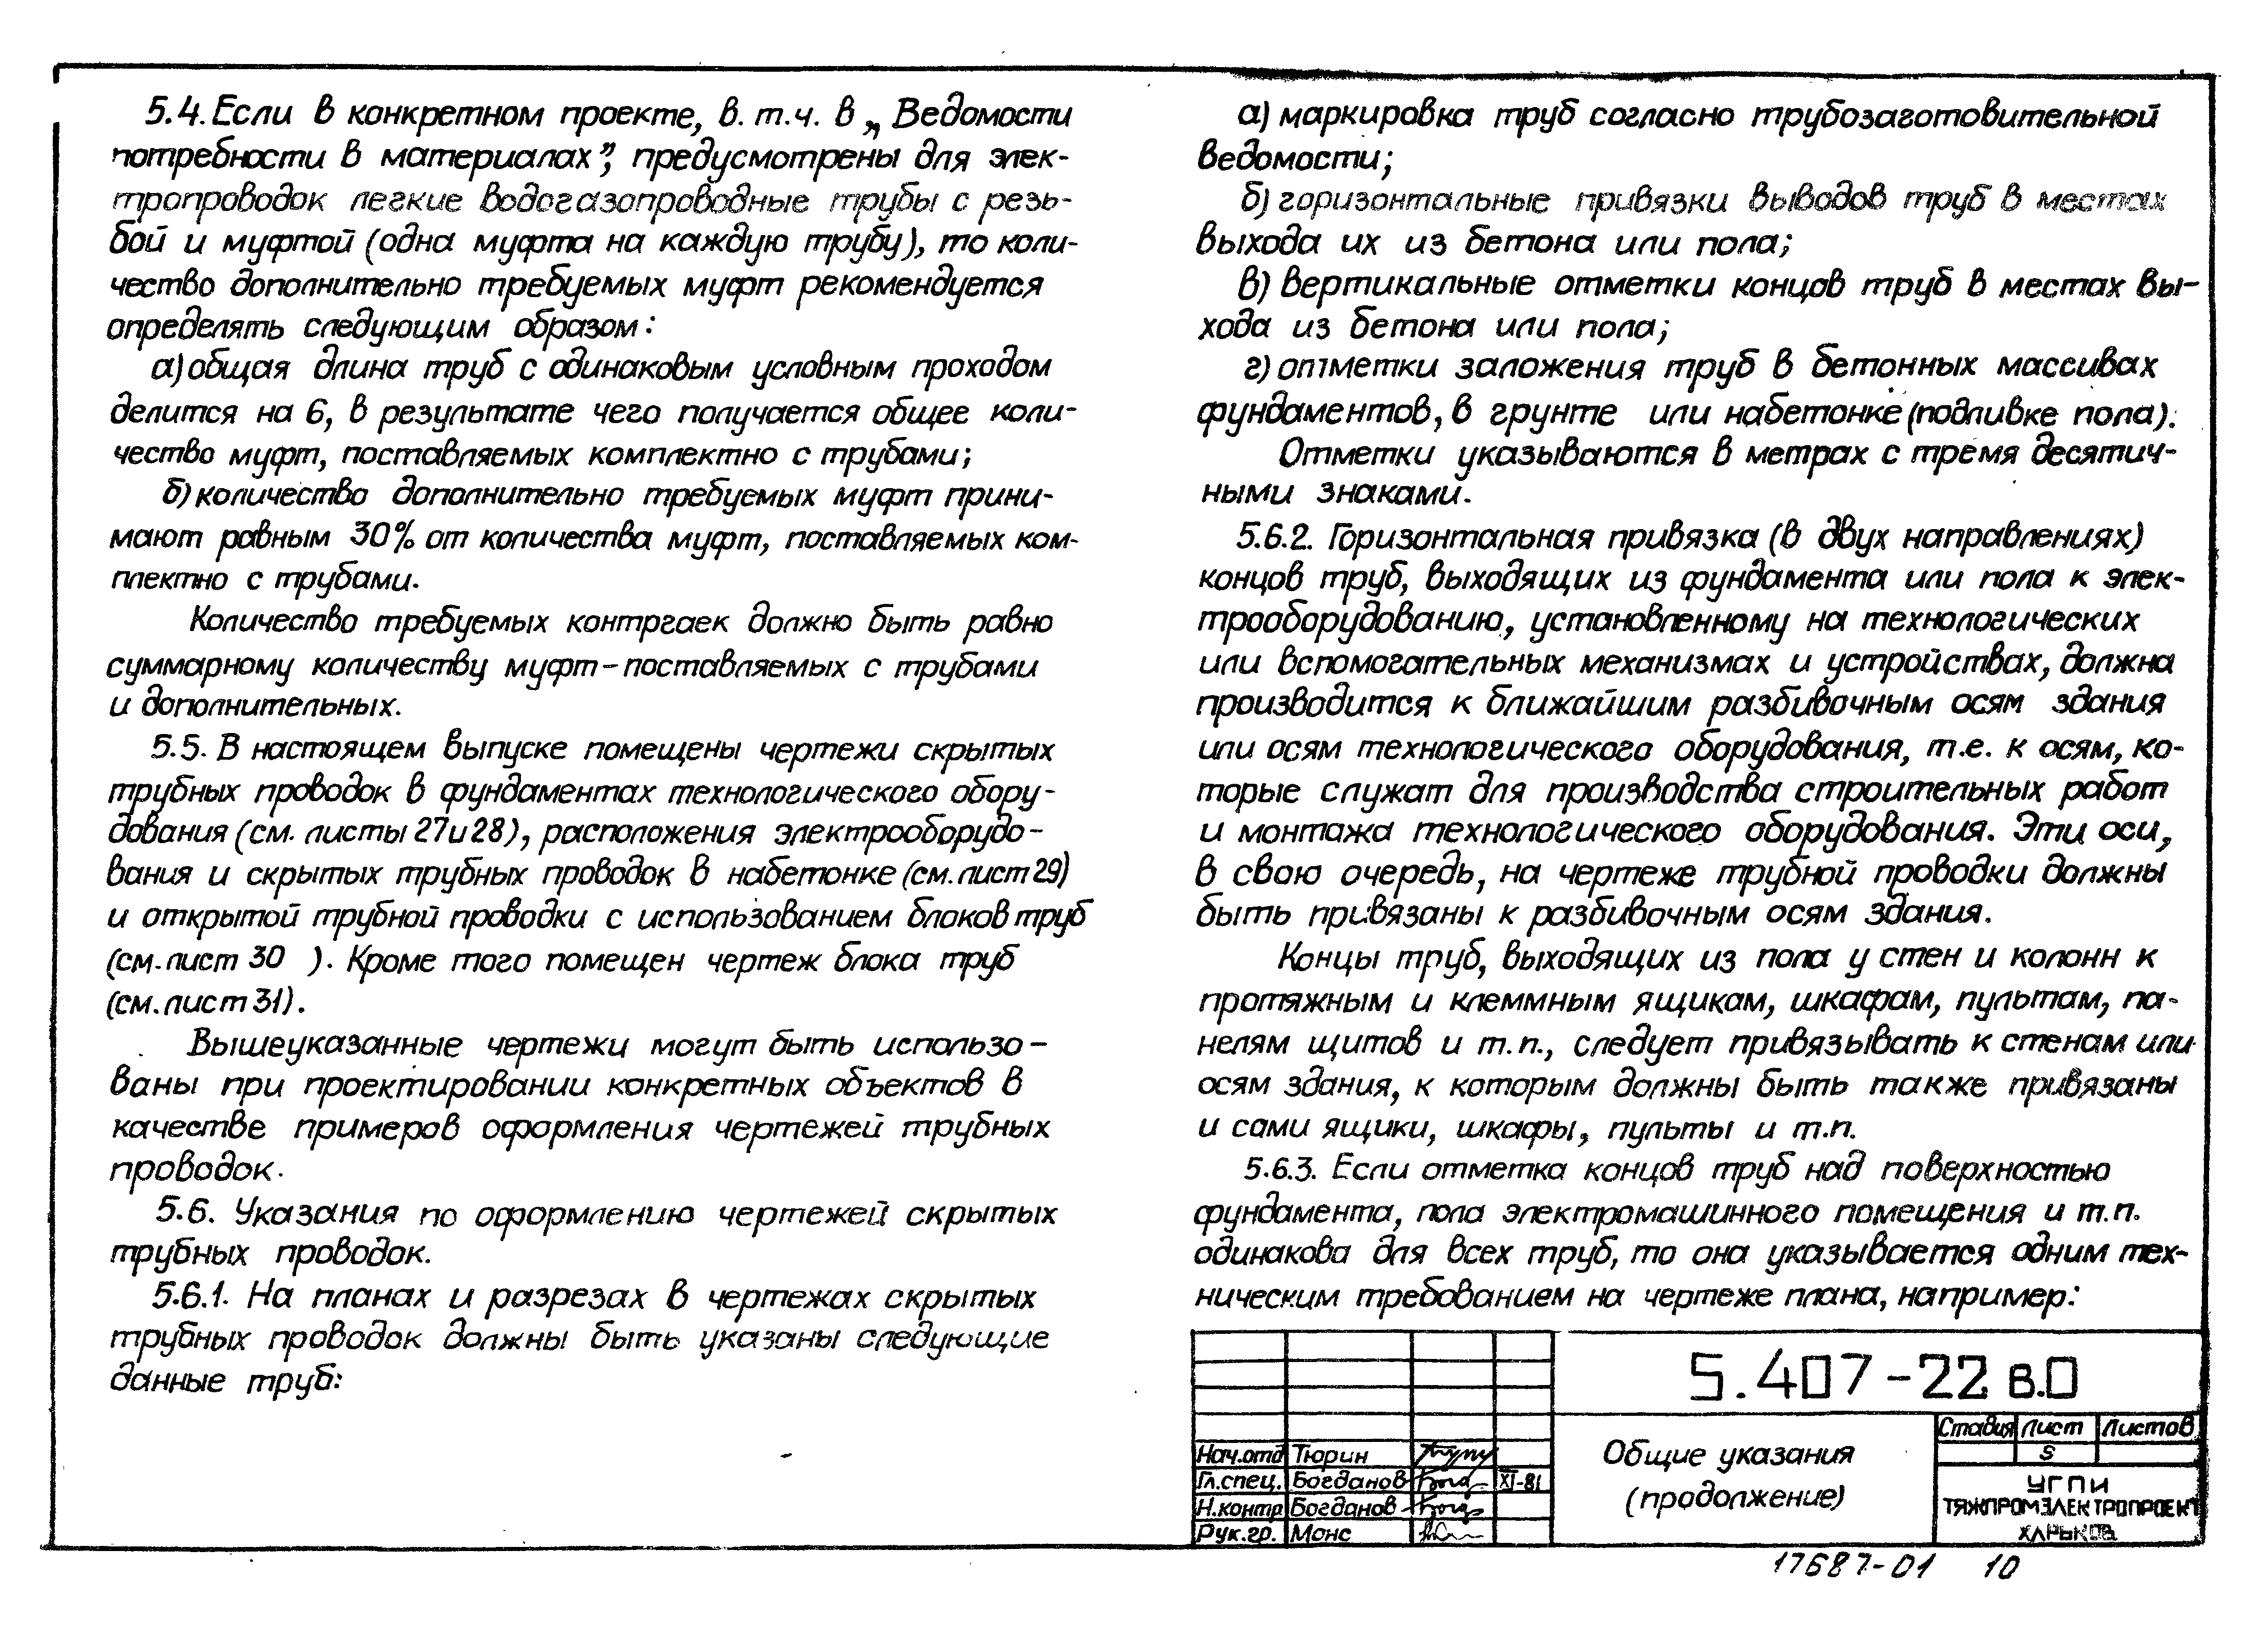 5.4. Если в конкретном проекте, в. т.ч. в „Ведомости
потребности в материалах”, предусмотрены для элек-
тропроводок легкие водогазопроводные трубы с резь-
бой и муфтой (одна муфта на каждую трубу), то коли-
чество дополнительно требуемых муфт рекомендуется
определять следующим образом:
а) общая длина труб с одинаковым условным проходом
делится на 6, в результате чего получается общее коли-
чество муфт, поставляемых комплектно с трубами;
б) количество дополнительно требуемых муфт прини-
мают равным 30% от количества муфт, поставляемых ком-
плектно с трубами.
Количество требуемых контргаек должно быть равно
суммарному количеству муфт - поставляемых с трубами
и дополнительных.
5.5. В настоящем выпуске помещены чертежи скрытых
трубных проводок в фундаментах технологического обору-
дования (см. листы 27 и 28), расположения электрооборудо-
вания и скрытых трубных проводок в набетонке (см. лист 29)
и открытой трубной проводки с использованием блоков труб
(см. лист 30 ). Кроме того помещен чертеж блока труб
(см. лист 31).
Вышеуказанные чертежи могут быть использо-
ваны при проектировании конкретных объектов в
качестве примеров оформления чертежей трубных
проводок.
5.6. Указания по оформлению чертежей скрытых
трубных проводок.
5.6.1. На планах и разрезах в чертежах скрытых
трубных проводок должны быть указаны следующие
данные труб:
а) маркировка труб согласно трубозаготовительной
ведомости;
б) горизонтальные привязки выводов труб в местах
выхода их из бетона или пола;
в) вертикальные отметки концов труб в местах вы-
хода из бетона или пола;
г) отметки заложения труб в бетонных массивах
фундаментов, в грунте или набетонке (подливке пола).
Отметки указываются в метрах с тремя десятич-
ными знаками.
5.6.2. Горизонтальная привязка (в двух направлениях)
концов труб, выходящих из фундамента или пола к элек-
трооборудованию, установленному на технологических
или вспомогательных механизмах и устройствах, должна
производится к ближайшим разбивочным осям здания
или осям технологического оборудования, т.е. к осям, ко-
торые служат для производства строительных работ
и монтажа технологического оборудования. Эти оси,
в свою очередь, на чертеже трубной проводки должны
быть привязаны к разбивочным осям здания.
Концы труб, выходящих из пола у стен и колонн к
протяжным и клеммным ящикам, шкафам, пультам, па-
нелям щитов и т.п., следует привязывать к стенам или
осям здания, к которым должны быть также привязаны
и сами ящики, шкафы, пульты и т.п.
5.6.3. Если отметка концов труб над поверхностью
фундамента, пола электромашинного помещения и т.п.
одинакова для всех труб, то она указывается одним тех-
ническим требованием на чертеже плана, например:
5.407-22 в.0
Общие указания
(продолжение)
Стадия Лист Листов
5
УГПИ
ТЯЖПРОМЭЛЕКТРОПРОЕКТ
ХАРЬКОВ
Нач.отд Тюрин
Гл.спец. Богданов XI-81
Н.контр Богданов
Рук.гр. Монс
17687-01 10